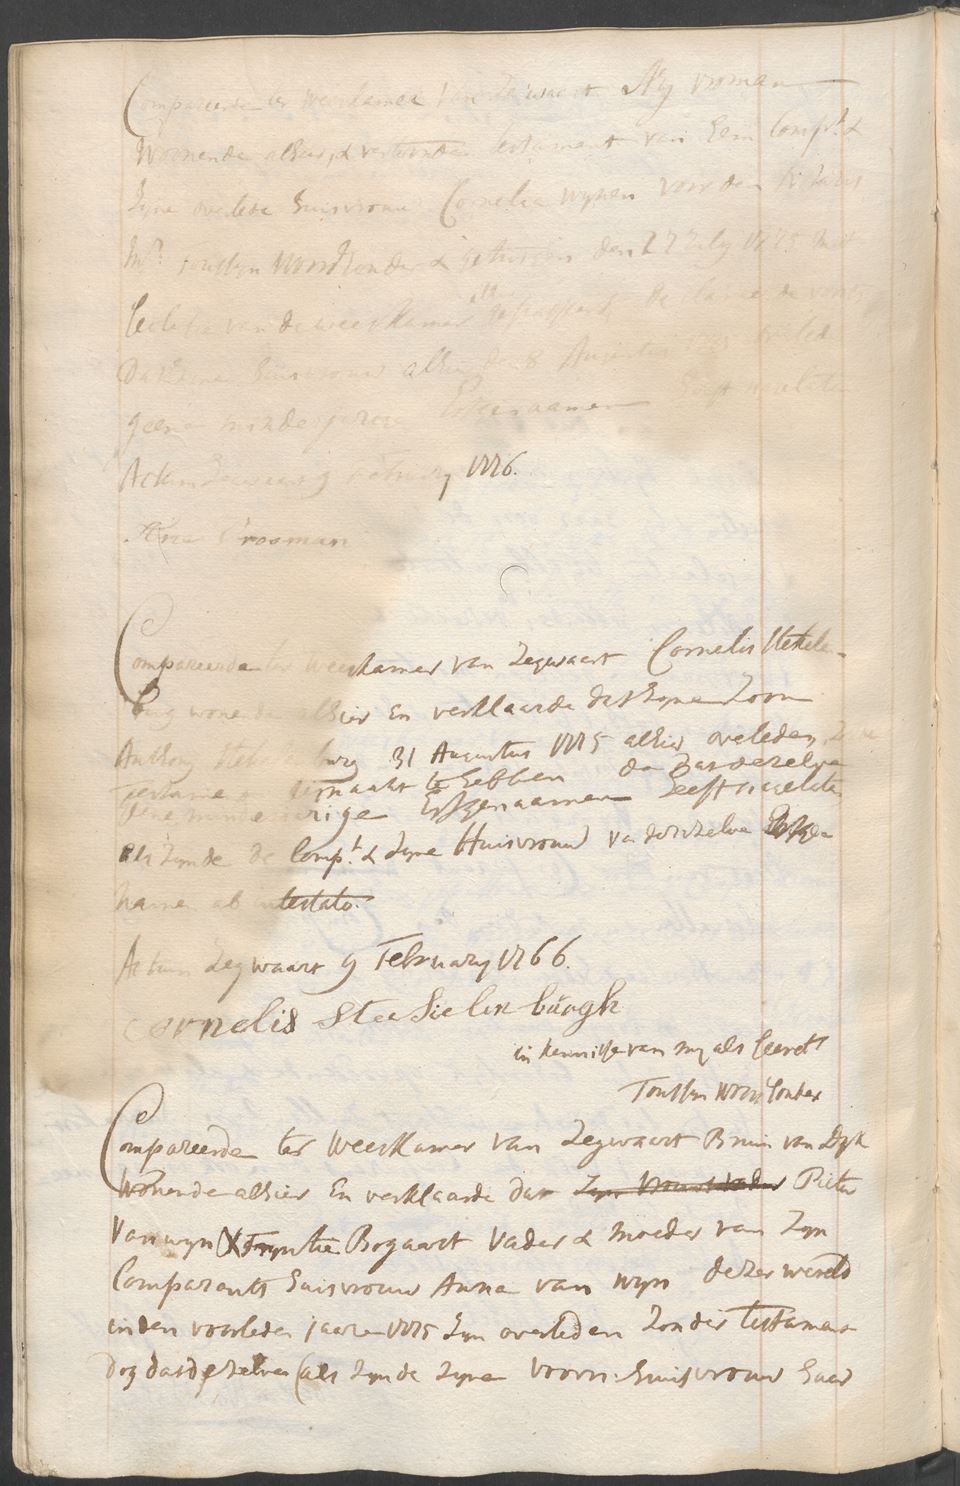 Compareerde ter weeskamer van Zegwaart Arij vroman
Woonende alhier, & vertoonde testament van hem Compt. &
Zyne overlede huisvrouw Cornelia Wynen voor den Notaris
Toussyn Noordzonder & getuigen den 27 July 1775 met
seclusie van de weeskamer gepasseert
Dat Zyne huisvrouw alhier den 8 Augustus
geene minderjarige Erfgenaamen heeft nagelaten
Actum Zegwaart 9 February 1776.
Arie Vrooman
Compareerde ter weeskamer van Zegwaart Cornelis Stekelen-
burg wonende alhier En verklaarde dat Zyne Zoon
Anthony Stekelenburg 31 Augustus 1775 alhier overleden, Zonder
Testament gemaakt te hebben do dat dezelve
gene minderjarige Erfgenaamen heeft nagelaten
als Zynde de Compt. & Zyne Huisvrouw van denzelve Erfge
namen ab intestato.
Actum Zegwaart 9 February 1766.
cornelis Steekelenburgh
in kennisse van my als secrets
Toussyn Noordzonder
Compareerde ter Weeskamer van Zegwaart Bruin van Dyk
Wonende alhier En verklaarde dat Zyn Vrouws vader Pieter
Van wyn & Fryntie Bogaart Vader & moeder van Zyn
Comparants huisvrouw Anna van wyn dezer werelt
in den voorleden jaare 1775 Zyn overleden Zonder Testament
dog dat dezelve (als Zynde Zyne voorn: huisvrouw haar